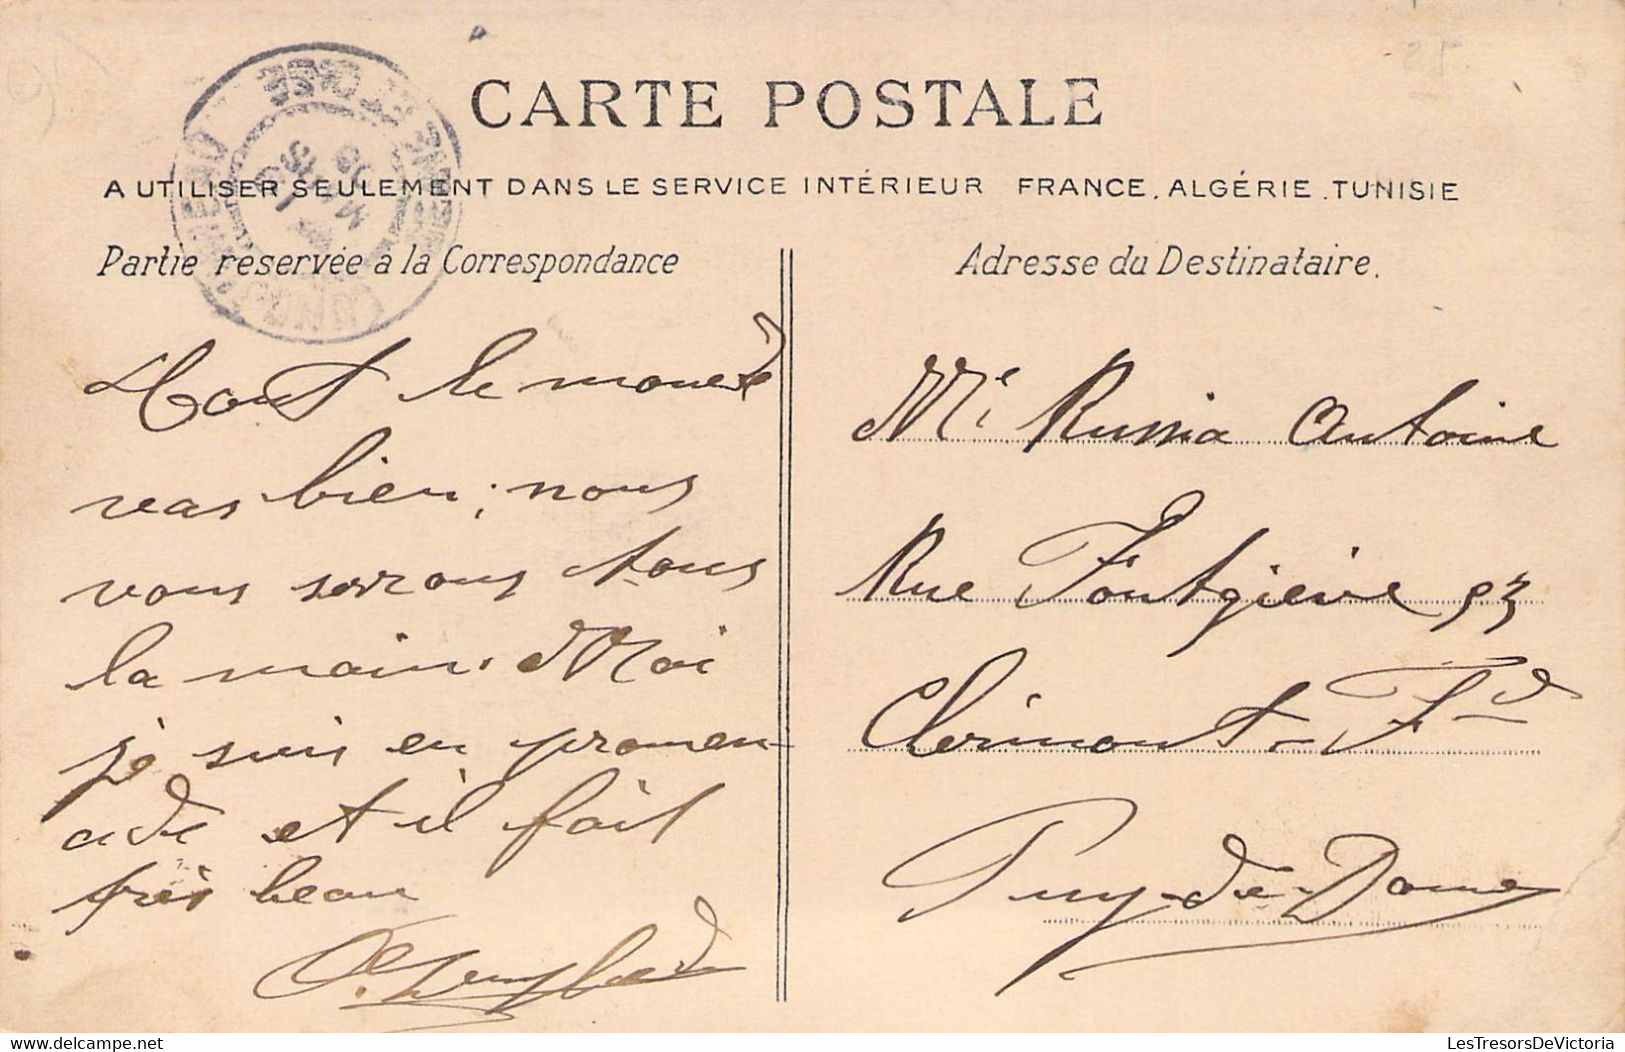 CARTE POSTALE
A UTILISER SEULEMENT DANS LE SERVICE INTÉRIEUR FRANCE, ALGÉRIE, TUNISIE
Partie réservée à la Correspondance
Tout le monde
vas bien ; nous
vous serrons tous
la main. Moi
je suis en promen-
ade et il fait
très beau
Adresse du Destinataire.
Antoine
Rue Fontgiève 93
Clermont-Fd
Puy-de-Dome
LesTresorsDeVictoria.com
LesTresorsDeVictoria